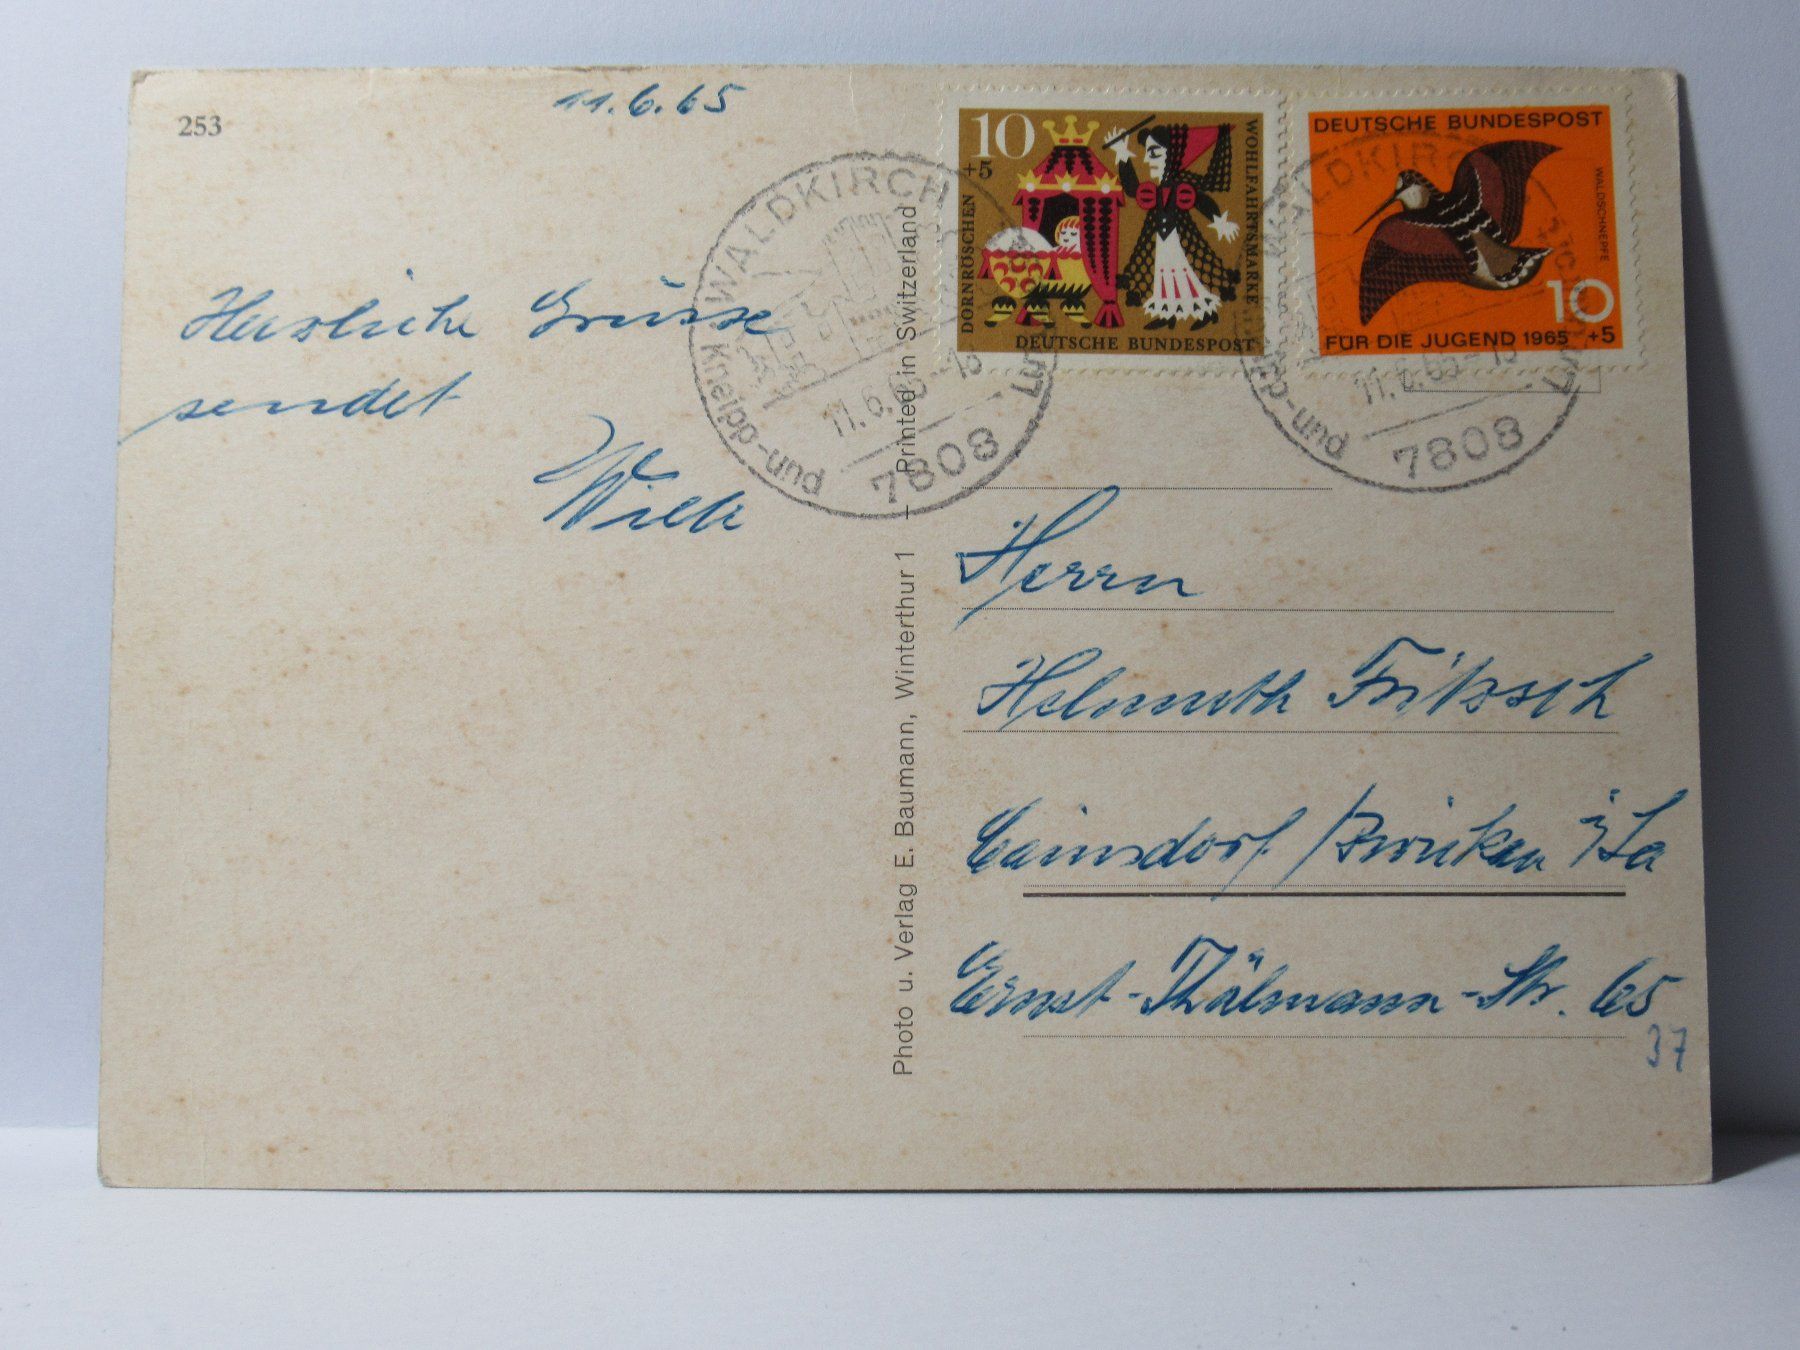 253
11.6.65
Herzliche Grüsse
sendet
Willi
Photo u. Verlag E. Baumann, Winterthur 1 + Printed in Switzerland
10
+5
DORNRÖSCHEN
WOHLFAHRTSMARKE
DEUTSCHE BUNDESPOST
DEUTSCHE BUNDESPOST
WALDSCHNEPFE
10
+5
FÜR DIE JUGEND 1965
WALDKIRCH
Kneipp-und
11.6.65-13
7808
WALDKIRCH
11.6.65-13
pp-und
7808
Herrn
Helmuth Fritzsch
Cainsdorf /Zwickau i/Sa
Ernst-Thälmann-Str. 65
37